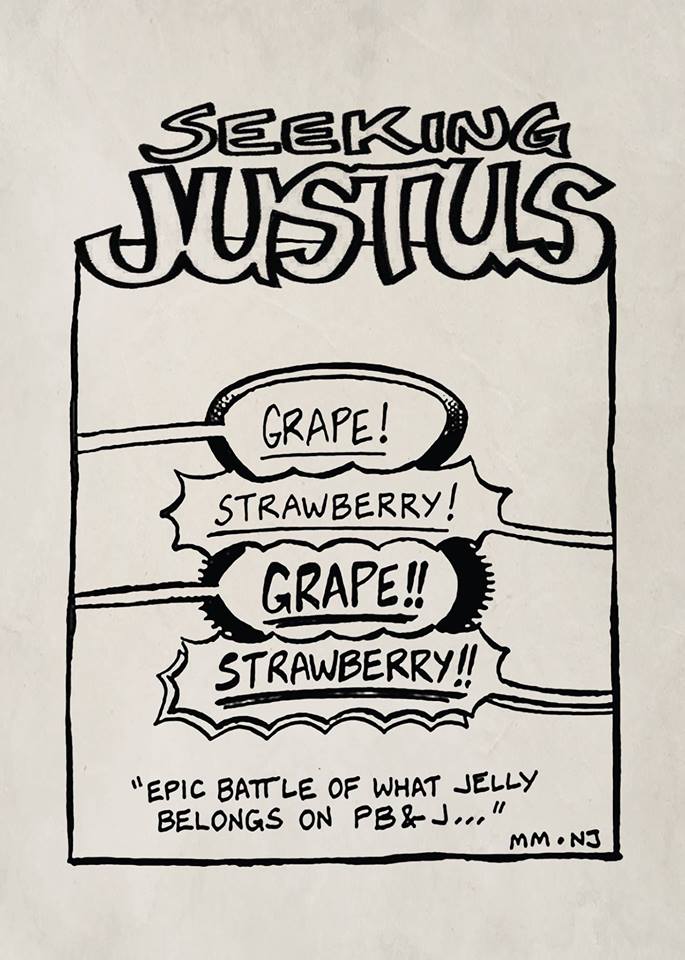 SEEKING
JUSTUS
GRAPE!
STRAWBERRY!
GRAPE!!
STRAWBERRY!!
"EPIC BATTLE OF WHAT JELLY
BELONGS ON PB&J..."
MM•NJ